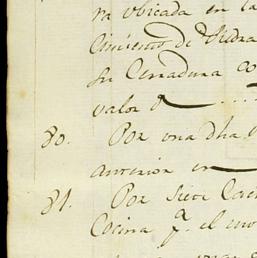 ra ubicada en la
Cimiento de Piedra
su Cerradura co
valor d
80. Por una dha
anterior en
81. Por siete
Cocina q.e el